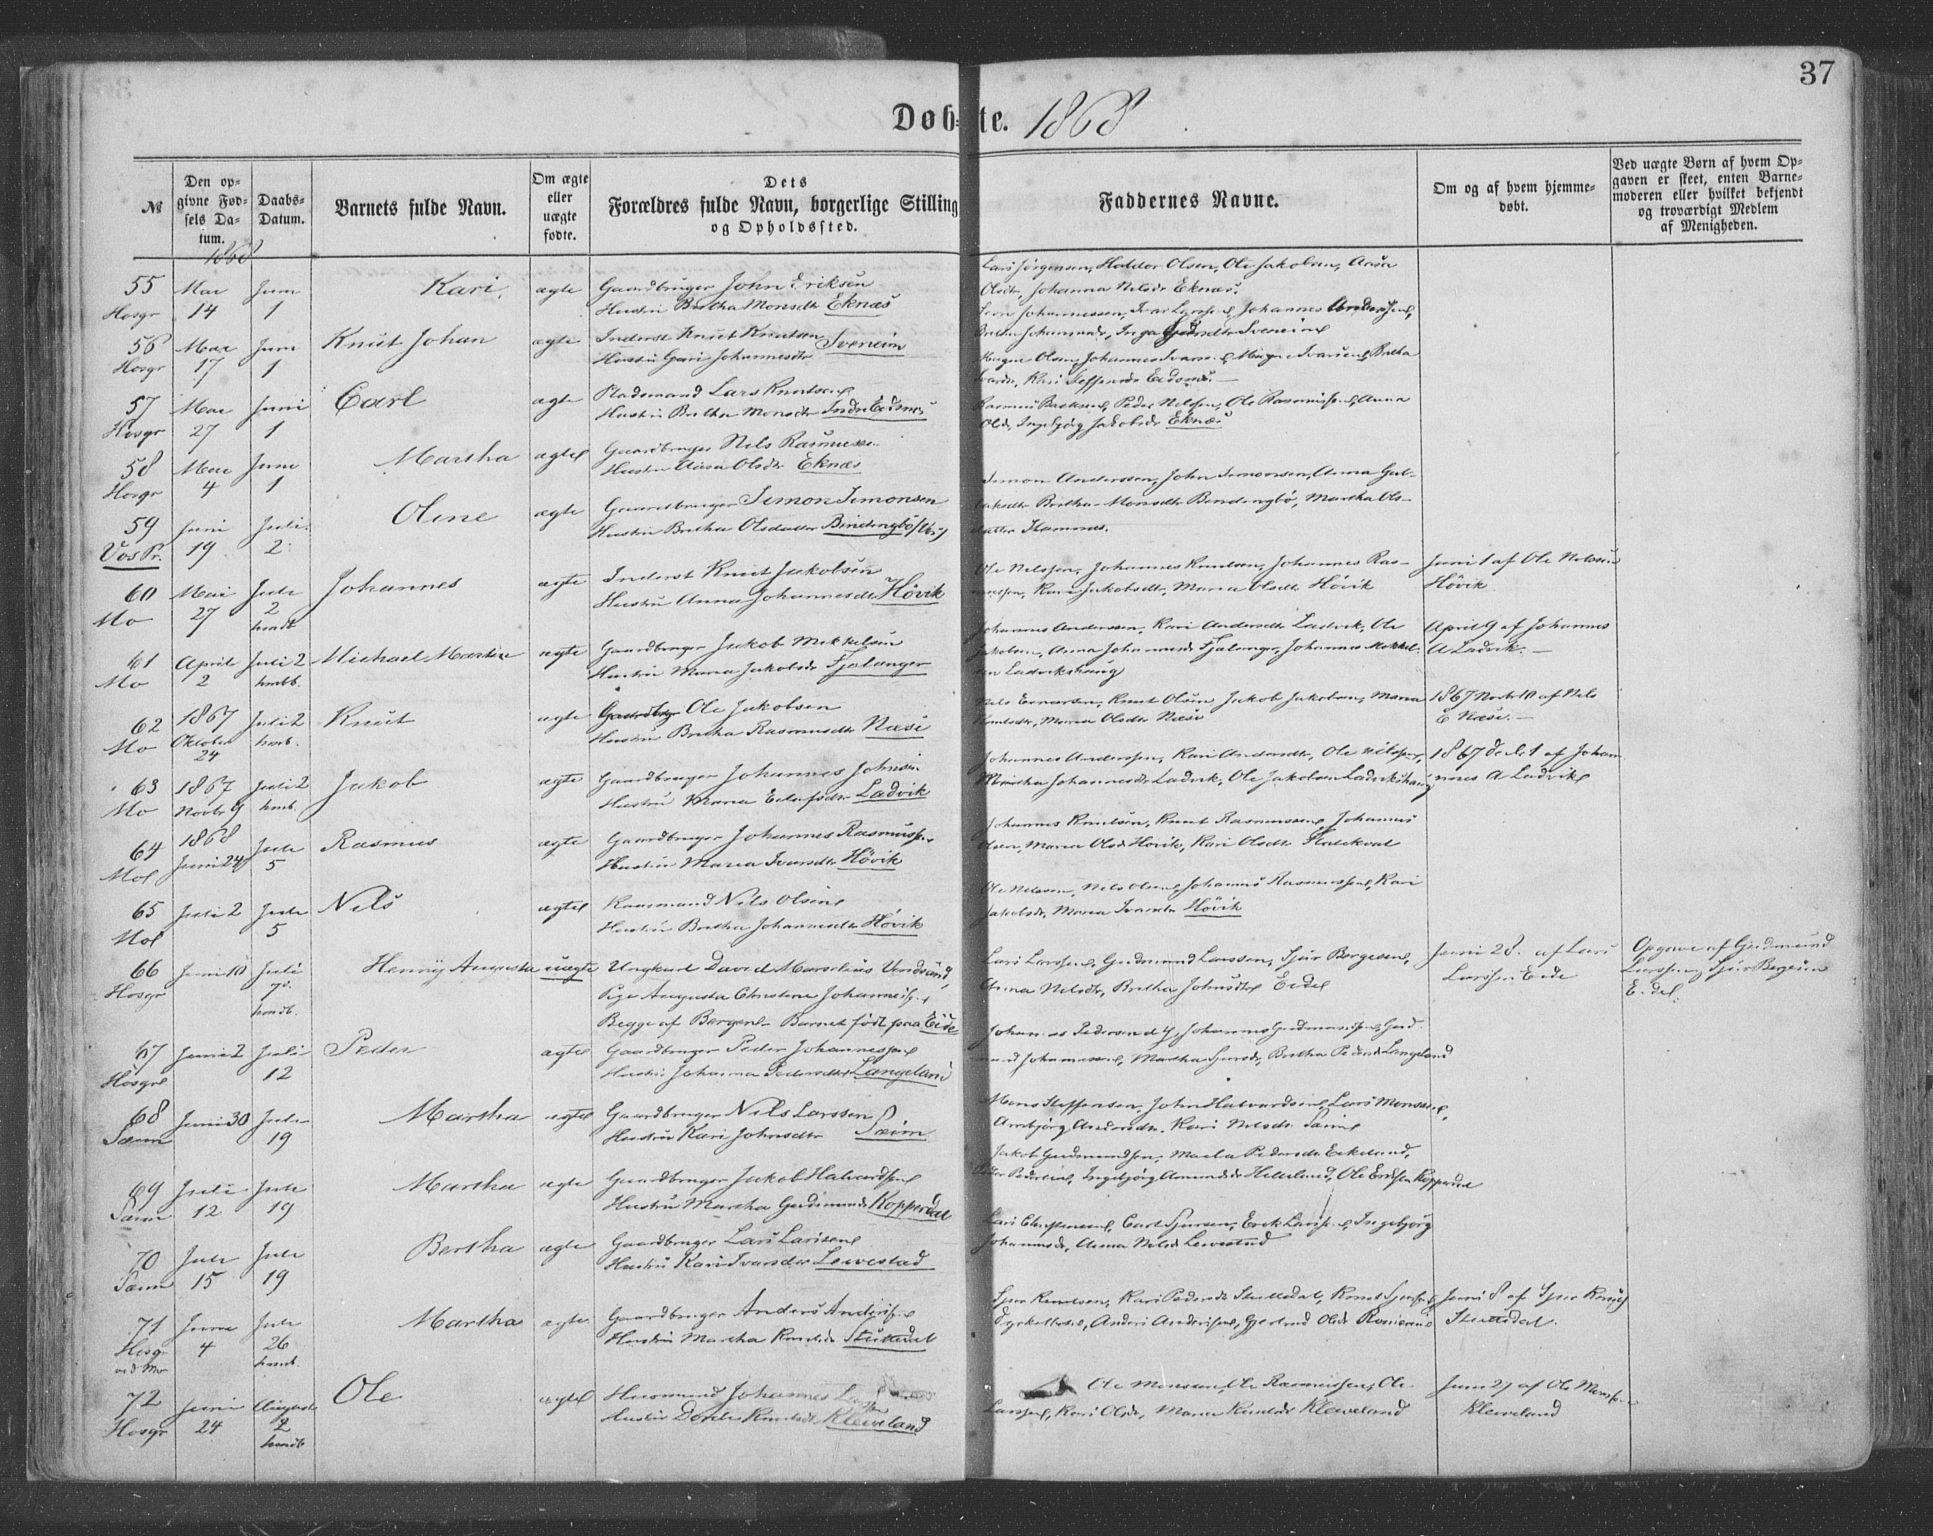 37
Døbte. 1868
№
Den opgivne Fødsels Datum.
Daabs-Datum.
Barnets fulde Navn.
Om ægte eller uægte fødte.
Dets Forældres fulde Navn, borgerlige Stilling og Opholdssted.
Faddernes Navne.
Om og af hvem hjemmedøbt.
Ved uægte Børn af hvem Opgaven er skeet, enten Barnemoderen eller hvilket bekjendt og troværdigt Medlem af Menigheden.
1868
55 Mai Juni Kari. ægte Gaardbruger John Eriksen
Hosgr 14 1 Hustru Brithe Monsdtr Eknæs
Lars Jørgensen, Haldor Olsen, Ole Jakobsen, Anna
Olsdtr, Johanna Nilsdtr Eknæs.
56 Mai Juni Knut Johan ægte Inderst Knut Knutsen Sveneim
Hosgr 17 1 Hustru Gari Johannesdtr
Johannessen, Ivar Larssen, Johannes Anderssen,
Brithe Johannesdtr, Inga Sveneim
57 Mai Juni Carl ægte Pladsmand Lars Knutsen
Hosgr 27 1 Hustru Brithe Monsdtr Indre Eidsnes
Mugne Olsen, Johannes Ivarsen, Mugne Ivarsen, Brithe
Ivarsdtr, Kari Steffensdtr Eidsnes. —
58 Mai Juni Martha ægte Gaardbruger Nils Rasmussen
Hosgr 4 1 Hustru Anna Olsdtr Eknæs
Rasmus Peder Nilssen, Ole Rasmussen, Anna
Olsdtr, Ingebjørg Jakobsdtr Eknæs
59 Juni Juli Oline ægte Gaardbruger Simon Simonsen
Vos Pr. 19 2 Hustru Brithe Olsdatter Bindingbø
Simon Anderssen, John Simonsen, Anna
Brithe Monsdtr Bindingbø, Martha Ols-
datter Hamnes.
60 Mai Juli Johannes ægte Inderst Knut Jakobsen
Mo 27 2 hmdt Hustru Anna Johannesdtr Høvik
Ole Nilssen, Johannes Knudsen, Johannes Ras-
mussen, Kari Jakobsdtr, Maria Olsdtr Høvik
Juni 1 af Ole Nilssen
Høvik
61 April Juli 2 Michael Martin ægte Gaardbruger Jakob Mikkelsen
Mo 2 hmdb. Hustru Maria Jakobsdtr Fjalanger
Johannes Anderssen, Kari Andersdtr Ladvik, Ole
Jakobsen, Anna Johannesdtr Fjalanger, Johannes Mikkel-
sen Ladvikshaug
April 9 af Johannes
A Ladvik. —
62 1867 Juli 2 Knut ægte Gaardbrgr Ole Jakobsen
Mo Oktober 24 hmb. Hustru Brithe Rasmusdtr Næse
Nils Knut Olsen Jakob Jakobsen, Maria
Knutsdtr, Maria Olsdtr Næse
1867 Novbr 10 af Nils
E Næse. —
63 1867 Juli 2 Jakob ægte Gaardbruger Johannes Johnsen
Mo Novbr 9 hmb. Hustru Maria Eilefsdtr Ladvik
Johannes Anderssen, Kari Andersdtr, Ole Nilssen,
Martha Johannesdtr Ladvik, Ole Jakobsen Ladvikshaug
1867 Decb. 1 af Johan
nnes A Ladvik
64 1868 Juli Rasmus ægte Gaardbruger Johannes Rasmussen
Mol Juni 24 5 Hustru Maria Ivarsdtr Høvik
Johannes Knudsen, Knut Rasmussen, Johannes
Olsen, Maria Olsd Høvik, Kari Olsdtr
65 Juli 2 Juli Nils ægte Nils Olsen
Mol 5 Hustru Brithe Johannesdtr Høvik
Ole Nilssen, Nils Olsen, Johannes Rasmussen, Kari
Jakobsdtr, Maria Ivarsdtr Høvik
66 Juni 10 Juli Henny Augusta uægte Ungkarl David Marselius
Hosgr 7 hmdb. Pige Augusta Christine Johannessen
Begge af Bergen. Barnet født paa Eide
Lars Larssen, Gudmund Larssen, Sjur Børgesen,
Anna Nilsdtr, Brithe Johnsdtr Eide
Juni 28. af Lars
Larssen Eide
Opgave af Gudmund
Larssen, Sjur Børgesen
Eide.
67 Juni 2 Juli Peder ægte Gaardbruger Peder Johannessen
Hosgr 12 Hustru Johanna Pedersdtr Langeland
Johannes Pedersen d. Y, Johannes Gudmundsen, Gud-
mund Johannessen, Martha Brithe Pedersdtr Langeland
68 Juni 30 Juli Martha ægte Gaardbruger Nils Larssen
Sæim 19 Hustru Kari Johnsdtr Sæim
Mons Steffensen, John Halvardsen, Lars Monssen,
Ambjørg Andersdtr. Kari Nilsdtr Sæim
69 Juli Juli Martha ægte Gaardbruger Jakob Halvardsen
Sæim 12 19 Hustru Martha Gudmundsdtr Kopperdal
Jakob Gudmundsen, Marta Pedersdtr Eikeland,
Peder Pedersen, Ingebjørg Amundsdtr Helleland, Ole Eriksen Kopperdal
70 Juli Juli Bertha ægte Gaardbruger Lars Larssen
Sæim 15 19 Hustru Kari Ivarsdtr Levestad
Lars Christensen, Carl Sjursen, Erik Larssen, Ingebjørg
Johannesdtr, Anna Nilsdtr Levestad
71 Juni Juli Martha ægte Gaardbruger Anders Anderssen
Hosgr 4 26 hmdb. Hustru Martha Knutsdtr Stuttedal
ved Mo
Sjur Knudsen, Kari Pedersdtr Stuttedal, Knut Sjursen
Anders Anderssen, Gjertrud Olsdtr
Juni 8 af Sjur Knuds
Stuttedal.
72 Juni August Ole ægte Huusmand Johannes
Hosgr 24 2 hmdb Hustru Dorthe Knutsdtr Kleiveland
Ole Monssen, Ole Rasmussen, Ole
Larssen, Kari Olsdtr, Maria Knutsdtr Kleiveland
Juni 27 af Ole Monssen
Kleiveland